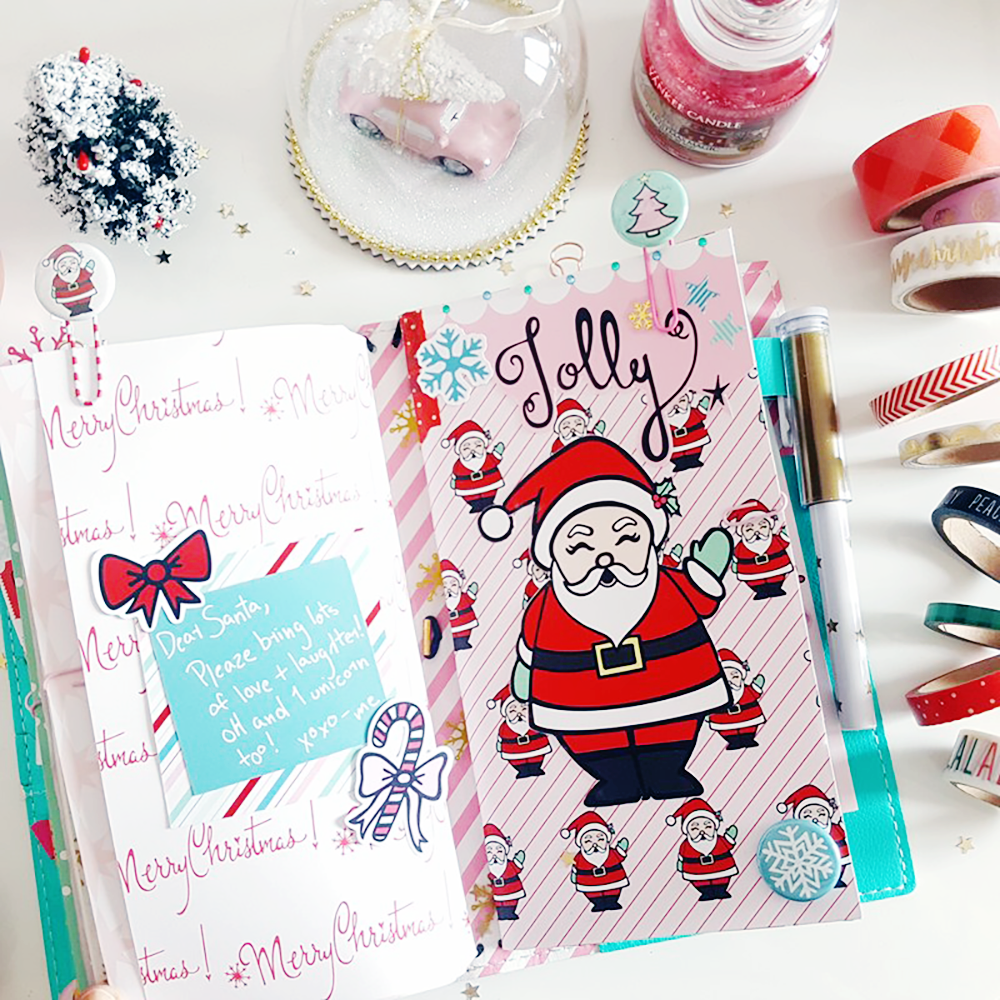 YANKEE CANDLE
Jolly
Merry Christmas! Merry
stmas! Merry Christmas
Dear Santa,
Please bring lots
of love + laughter!
oH and 1 unicorn
too! xoxo-me
Merry
stmas
Merry Christmas!
stmas! Merry Christmas!
Christmas
PEAC
LALA